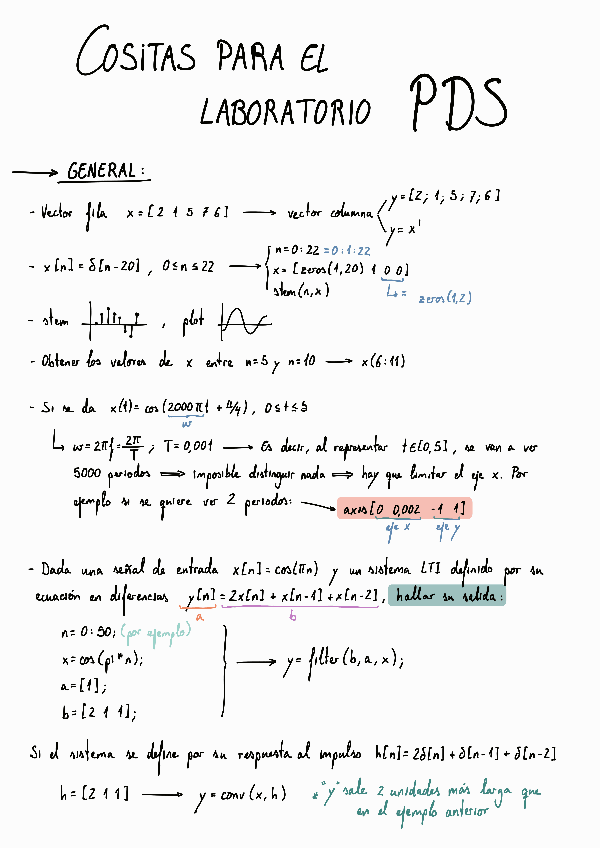 COSITAS PARA EL
LABORATORIO PDS
→ GENERAL:
- Vector fila x = [2 1 5 7 6] → vector columna
y = [2; 1; 5; 7; 6]
y = x'
- x[n] = δ[n-20] , 0≤n≤22 →
n = 0:22 = 0:1:22
x = [zeros(1,20) 1 0 0]
stem(n,x)
↳ = zeros(1,2)
- stem , plot
- Obtener los valores de x entre n=5 y n=10 → x(6:11)
- Si se da x(t) = cos(2000πt + π/4) , 0≤t≤5
w
↳ w = 2πf = 2π/T ; T = 0,001 → Es decir, al representar t∈[0,5] , se van a ver
5000 periodos ⇒ imposible distinguir nada ⇒ hay que limitar el eje x. Por
ejemplo si se quiere ver 2 periodos: → axis[0 0,002 -1 1]
eje x eje y
- Dada una señal de entrada x[n] = cos(πn) y un sistema LTI definido por su
ecuación en diferencias y[n] = 2x[n] + x[n-1] + x[n-2] , hallar su salida:
a b
n = 0:50; (por ejemplo)
x = cos(pi*n);
a = [1];
b = [2 1 1];
→ y = filter(b, a, x);
Si el sistema se define por su respuesta al impulso h[n] = 2δ[n] + δ[n-1] + δ[n-2]
h = [2 1 1] → y = conv(x, h) * "y" sale 2 unidades más larga que
en el ejemplo anterior